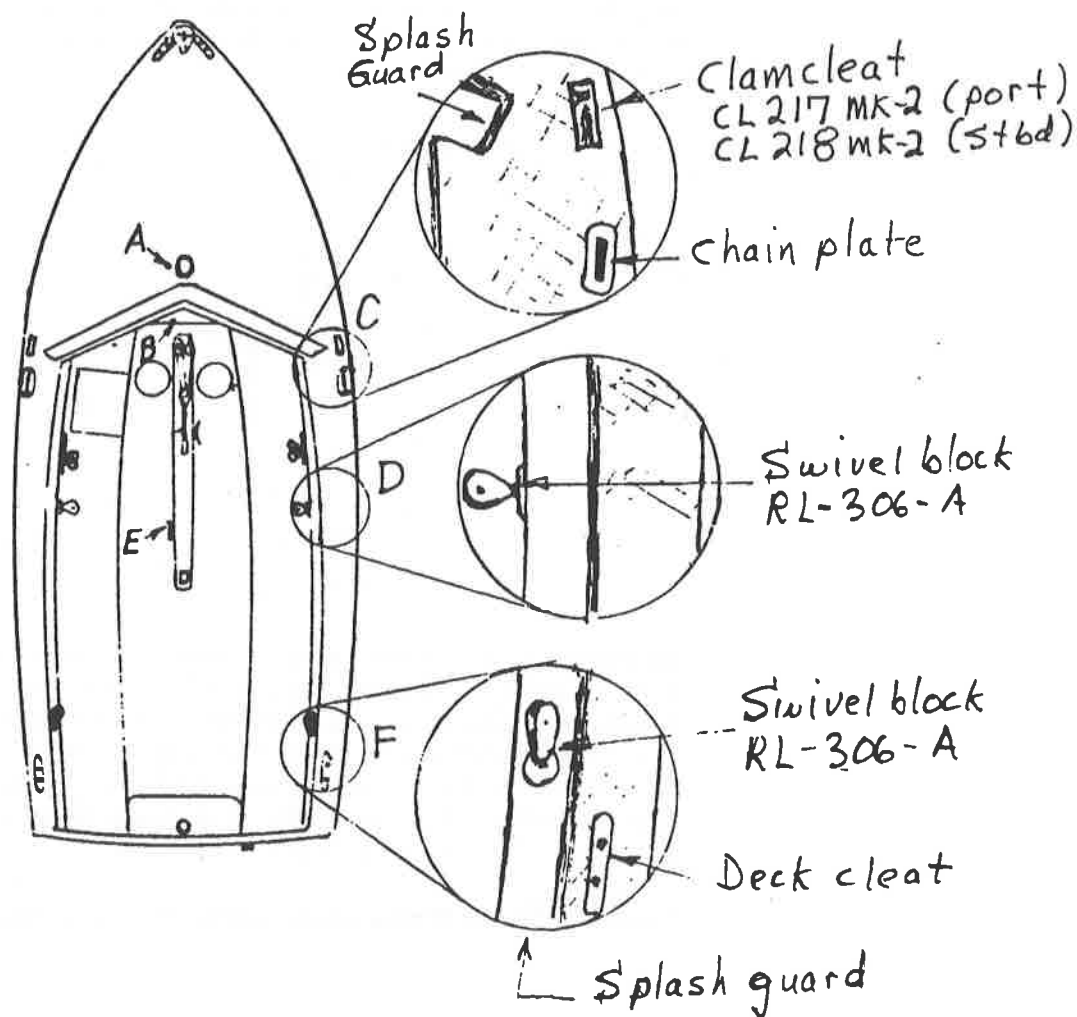 Splash
Guard
Clamcleat
CL 217 MK-2 (port)
CL 218 MK-2 (Stbd)
Chain plate
A
B
C
D
E
F
Swivel block
RL-306-A
Swivel block
RL-306-A
Deck cleat
Splash guard